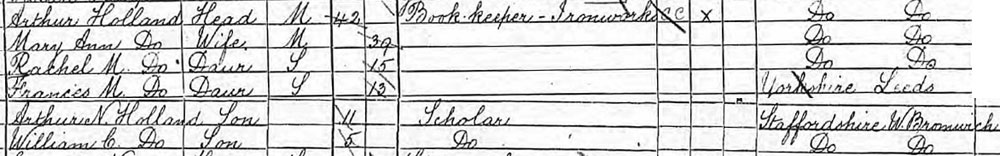 Arthur Holland Head M 42 Book-keeper - Ironworks x Do Do
Mary Ann Do Wife M 39 Do Do
Rachel M. Do Daur S 15 Do Do
Frances M. Do Daur S 13 Yorkshire Leeds
Arthur N. Holland Son 11 Scholar Staffordshire W. Bromwich
William C. Do Son 5 Do Do Do